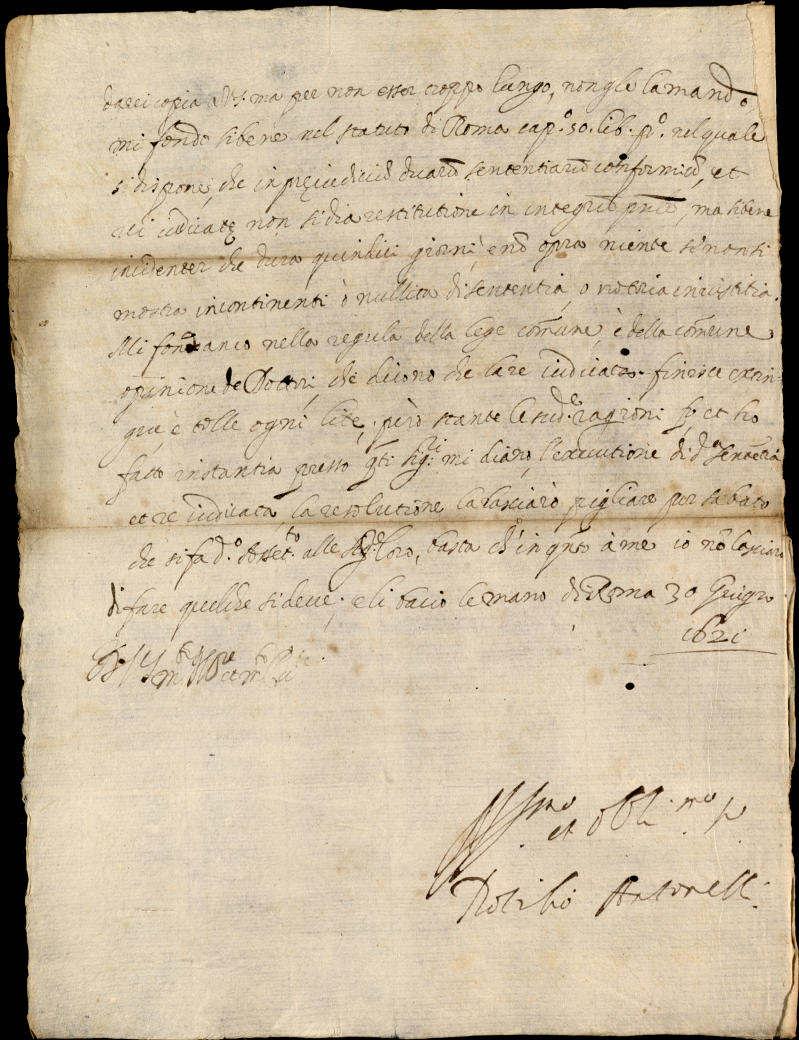 darci copia a V.S. ma per non esser troppo lungo, non gle la mando
mi fondo sibene nel statuto di Roma cap.º 50. lib. p.º nel quale
si dispone, che in preiudicio duarū sententiarū conformiū, et
rei iudicate non si dia restitutione in integrū prīle, ma sibene
incidenter che dura quindici giorni, e nō opra niente se non si
mostra incontinenti ò nullità di sententia, o notoria iniustitia.
Mi fondo anco nella regula della lege comune, è della comune
opinione de Dottori, che dicono che la re iudicata finisce extin-
gue, è tolle ogni lite, però stante le sud.e ragioni et ho
fatto instantia presso q̄ti sig.ri mi diano l'executione di d.a sentētia
et re iudicata la resolutione la lasciarò pigliare per sabato
che si fa d.º alle loro, basta ch'in q̄to à me io nō lasciarò
di fare quelche si deve, e li bacio le mano di Roma 30 Giugno
1621
Di V.S. m.to Ill.re et m.to
Aff.mo et obl.mo s.re
Rotilio Antonelli